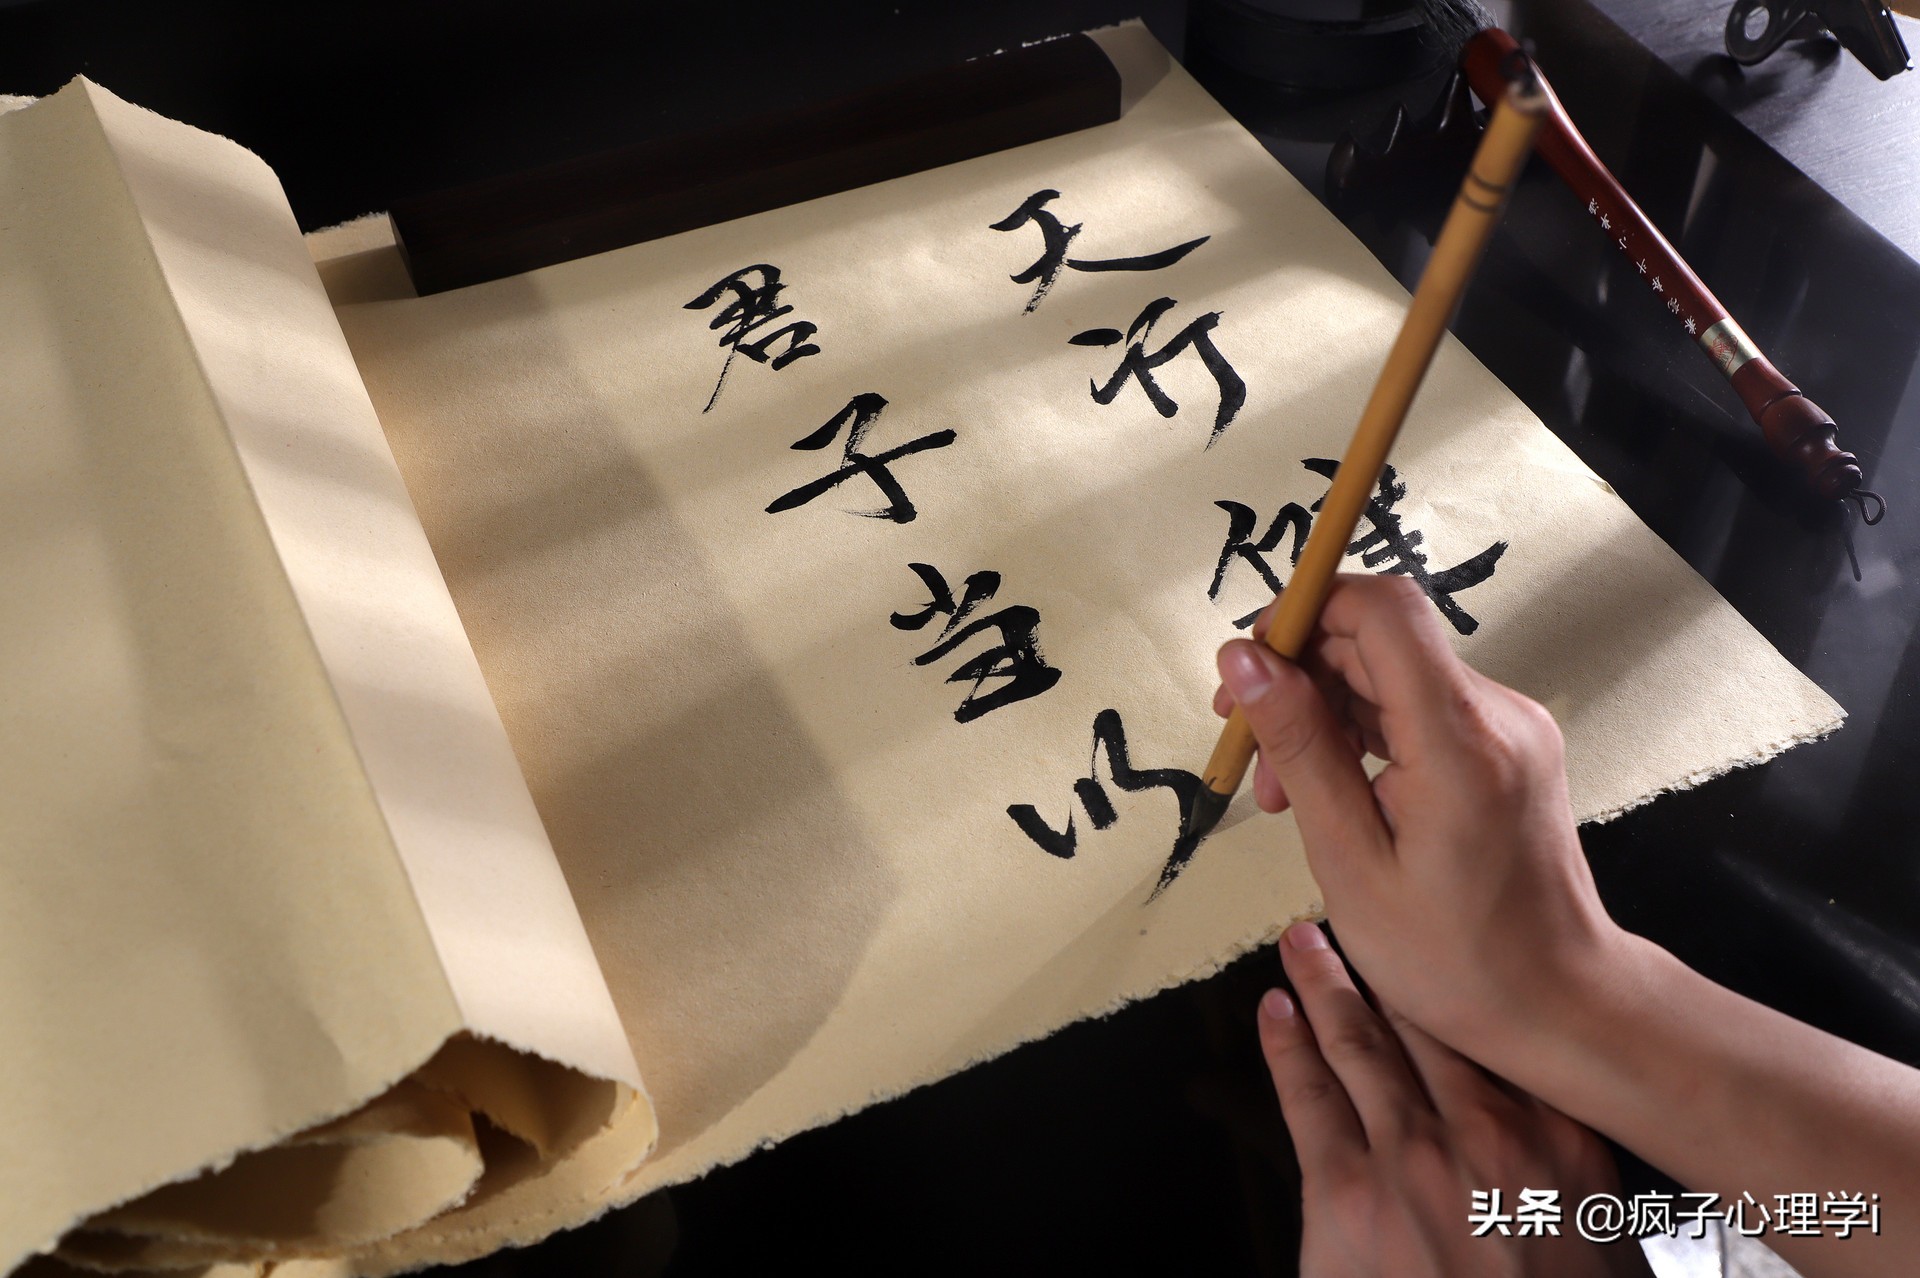 天行健
君子当以
头条 @疯子心理学i